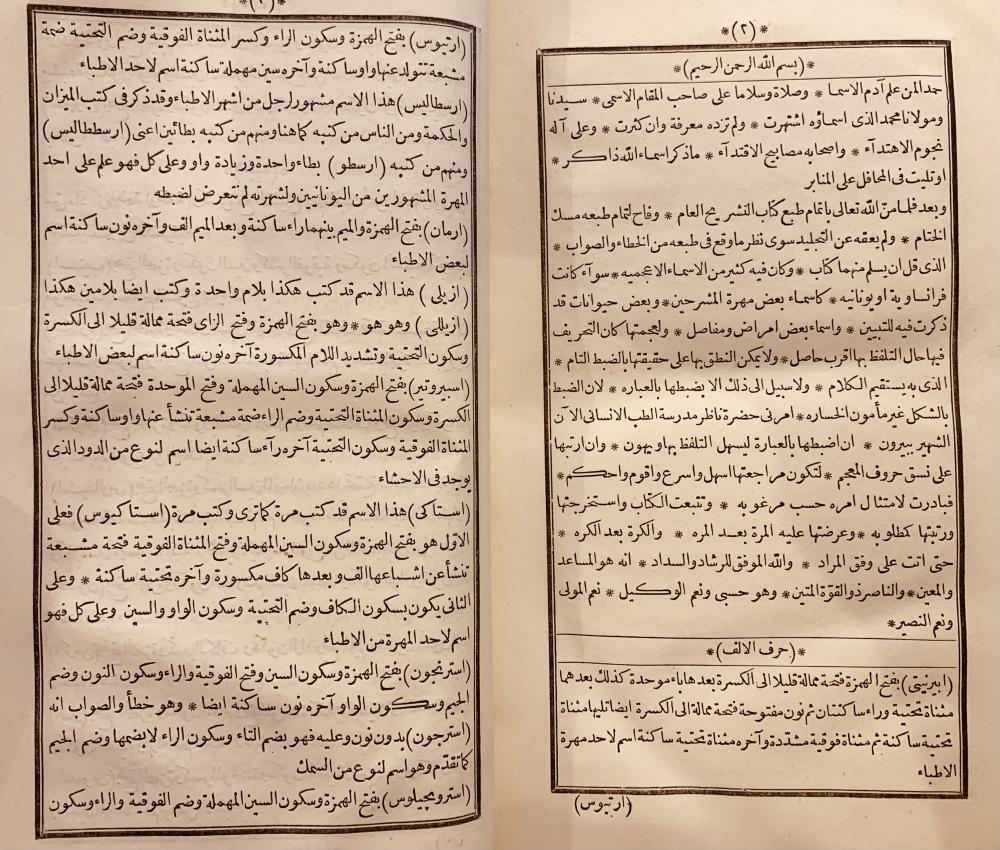 *(٢)*
*(بسم الله الرحمن الرحيم)*
حمدا لمن علم آدم الاسما * وصلاة وسلاما على صاحب المقام الاسمى * سيدنا
ومولانا محمد الذى اسماؤه اشتهرت * ولم تزده معرفة وان كثرت * وعلى آله
نجوم الاهتدآء * واصحابه مصابيح الاقتدآء * ماذكر اسماء الله ذاكر *
اوتليت فى المحافل على المنابر
وبعد فلما منّ الله تعالى باتمام طبع كتاب التشريح العام * وفاح لتمام طبعه مسك
الختام * ولم يعقه عن التجليد سوى نظر ماوقع فى طبعه من الخطاء والصواب *
الذى قل ان يسلم منهما كتاب * وكان فيه كثير من الاسماء الاعجميه * سوآء كانت
فرانساوية او يونانيه * كاسماء بعض مهرة المشرحين * وبعض حيوانات قد
ذكرت فيه للتبيين * واسماء بعض امراض ومفاصل * ولعجمتها كان التحريف
فيها حال التلفظ بها اقرب حاصل * ولا يمكن النطق بها على حقيقتها بالضبط التام *
الذى به يستقيم الكلام * ولا سبيل الى ذلك الا بضبطها بالعباره * لان الضبط
بالشكل غير مأمون الخساره * امرنى حضرة ناظر مدرسة الطب الانسانى الآن
الشهير ببيرون * ان اضبطها بالعبارة ليسهل التلفظ بها ويهون * وان ارتبها
على نسق حروف المعجم * لتكون مراجعتها اسهل واسرع واقوم واحكم *
فبادرت لامتثال امره حسب مرغوبه * وتتبعت الكتاب واستخرجتها
ورتبتها كمطلوبه * وعرضتها عليه المرة بعد المره * والكرة بعد الكره *
حتى اتت على وفق المراد * والله الموفق للرشاد والسداد * انه هو المساعد
والمعين * والناصر ذو القوّة المتين * وهو حسبى ونعم الوكيل * نعم المولى
ونعم النصير *
*(حرف الالف)*
(ابيرنيتى) بفتح الهمزة فتحة ممالة قليلا الى الكسرة بعدها باء موحدة كذلك بعدهما
مثناة تحتية وراء ساكنتان ثم نون مفتوحة فتحة ممالة الى الكسرة ايضا تليها مثناة
تحتية ساكنة ثم مثناة فوقية مشدّدة وآخره مثناة تحتية ساكنة اسم لاحد مهرة
الاطباء
(ارتيوس)
*(٣)*
(ارتيوس) بفتح الهمزة وسكون الراء وكسر المثناة الفوقية وضم التحتية ضمة
مشبعة تتولد عنها واو ساكنة وآخره سين مهملة ساكنة اسم لاحد الاطباء
(ارسطاليس) هذا الاسم مشهور لرجل من اشهر الاطباء وقد ذكر فى كتب الميزان
والحكمة ومن الناس من كتبه كما هنا ومنهم من كتبه بطائين اعنى (ارسططاليس)
ومنهم من كتبه (ارسطو) بطاء واحدة وزيادة واو وعلى كل فهو علم على احد
المهرة المشهورين من اليونانيين ولشهرته لم نتعرض لضبطه
(ارمان) بفتح الهمزة والميم بينهما راء ساكنة وبعد الميم الف وآخره نون ساكنة اسم
لبعض الاطباء
(ازيلى) هذا الاسم قد كتب هكذا بلام واحدة وكتب ايضا بلامين هكذا
(ازيللى) وهو هو * وهو بفتح الهمزة وفتح الزاى فتحة ممالة قليلا الى الكسرة
وسكون التحتية وتشديد اللام المكسورة آخره نون ساكنة اسم لبعض الاطباء
(اسبيروتير) بفتح الهمزة وسكون السين المهملة وفتح الموحدة فتحة ممالة قليلا الى
الكسرة وسكون المثناة التحتية وضم الراء ضمة مشبعة تنشأ عنها واو ساكنة وكسر
المثناة الفوقية وسكون التحتية آخره رآء ساكنة ايضا اسم لنوع من الدود الذى
يوجد فى الاحشاء
(استاكى) هذا الاسم قد كتب مرة كما ترى وكتب مرة (استاكيوس) فعلى
الاوّل هو بفتح الهمزة وسكون السين المهملة وفتح المثناة الفوقية فتحة مشبعة
تنشأ عن اشباعها الف وبعدها كاف مكسورة وآخره تحتية ساكنة * وعلى
الثانى يكون بسكون الكاف وضم التحتية وسكون الواو والسين وعلى كل فهو
اسم لاحد المهرة من الاطباء
(استرنجون) بفتح الهمزة وسكون السين وفتح الفوقية والراء وسكون النون وضم
الجيم وسكون الواو آخره نون ساكنة ايضا * وهو خطأ والصواب انه
(استرجون) بدون نون وعليه فهو بضم التاء وسكون الراء لا بضمها وضم الجيم
كما تقدّم وهو اسم لنوع من السمك
(استرومجيلوس) بفتح الهمزة وسكون السين المهملة وضم الفوقية والراء وسكون